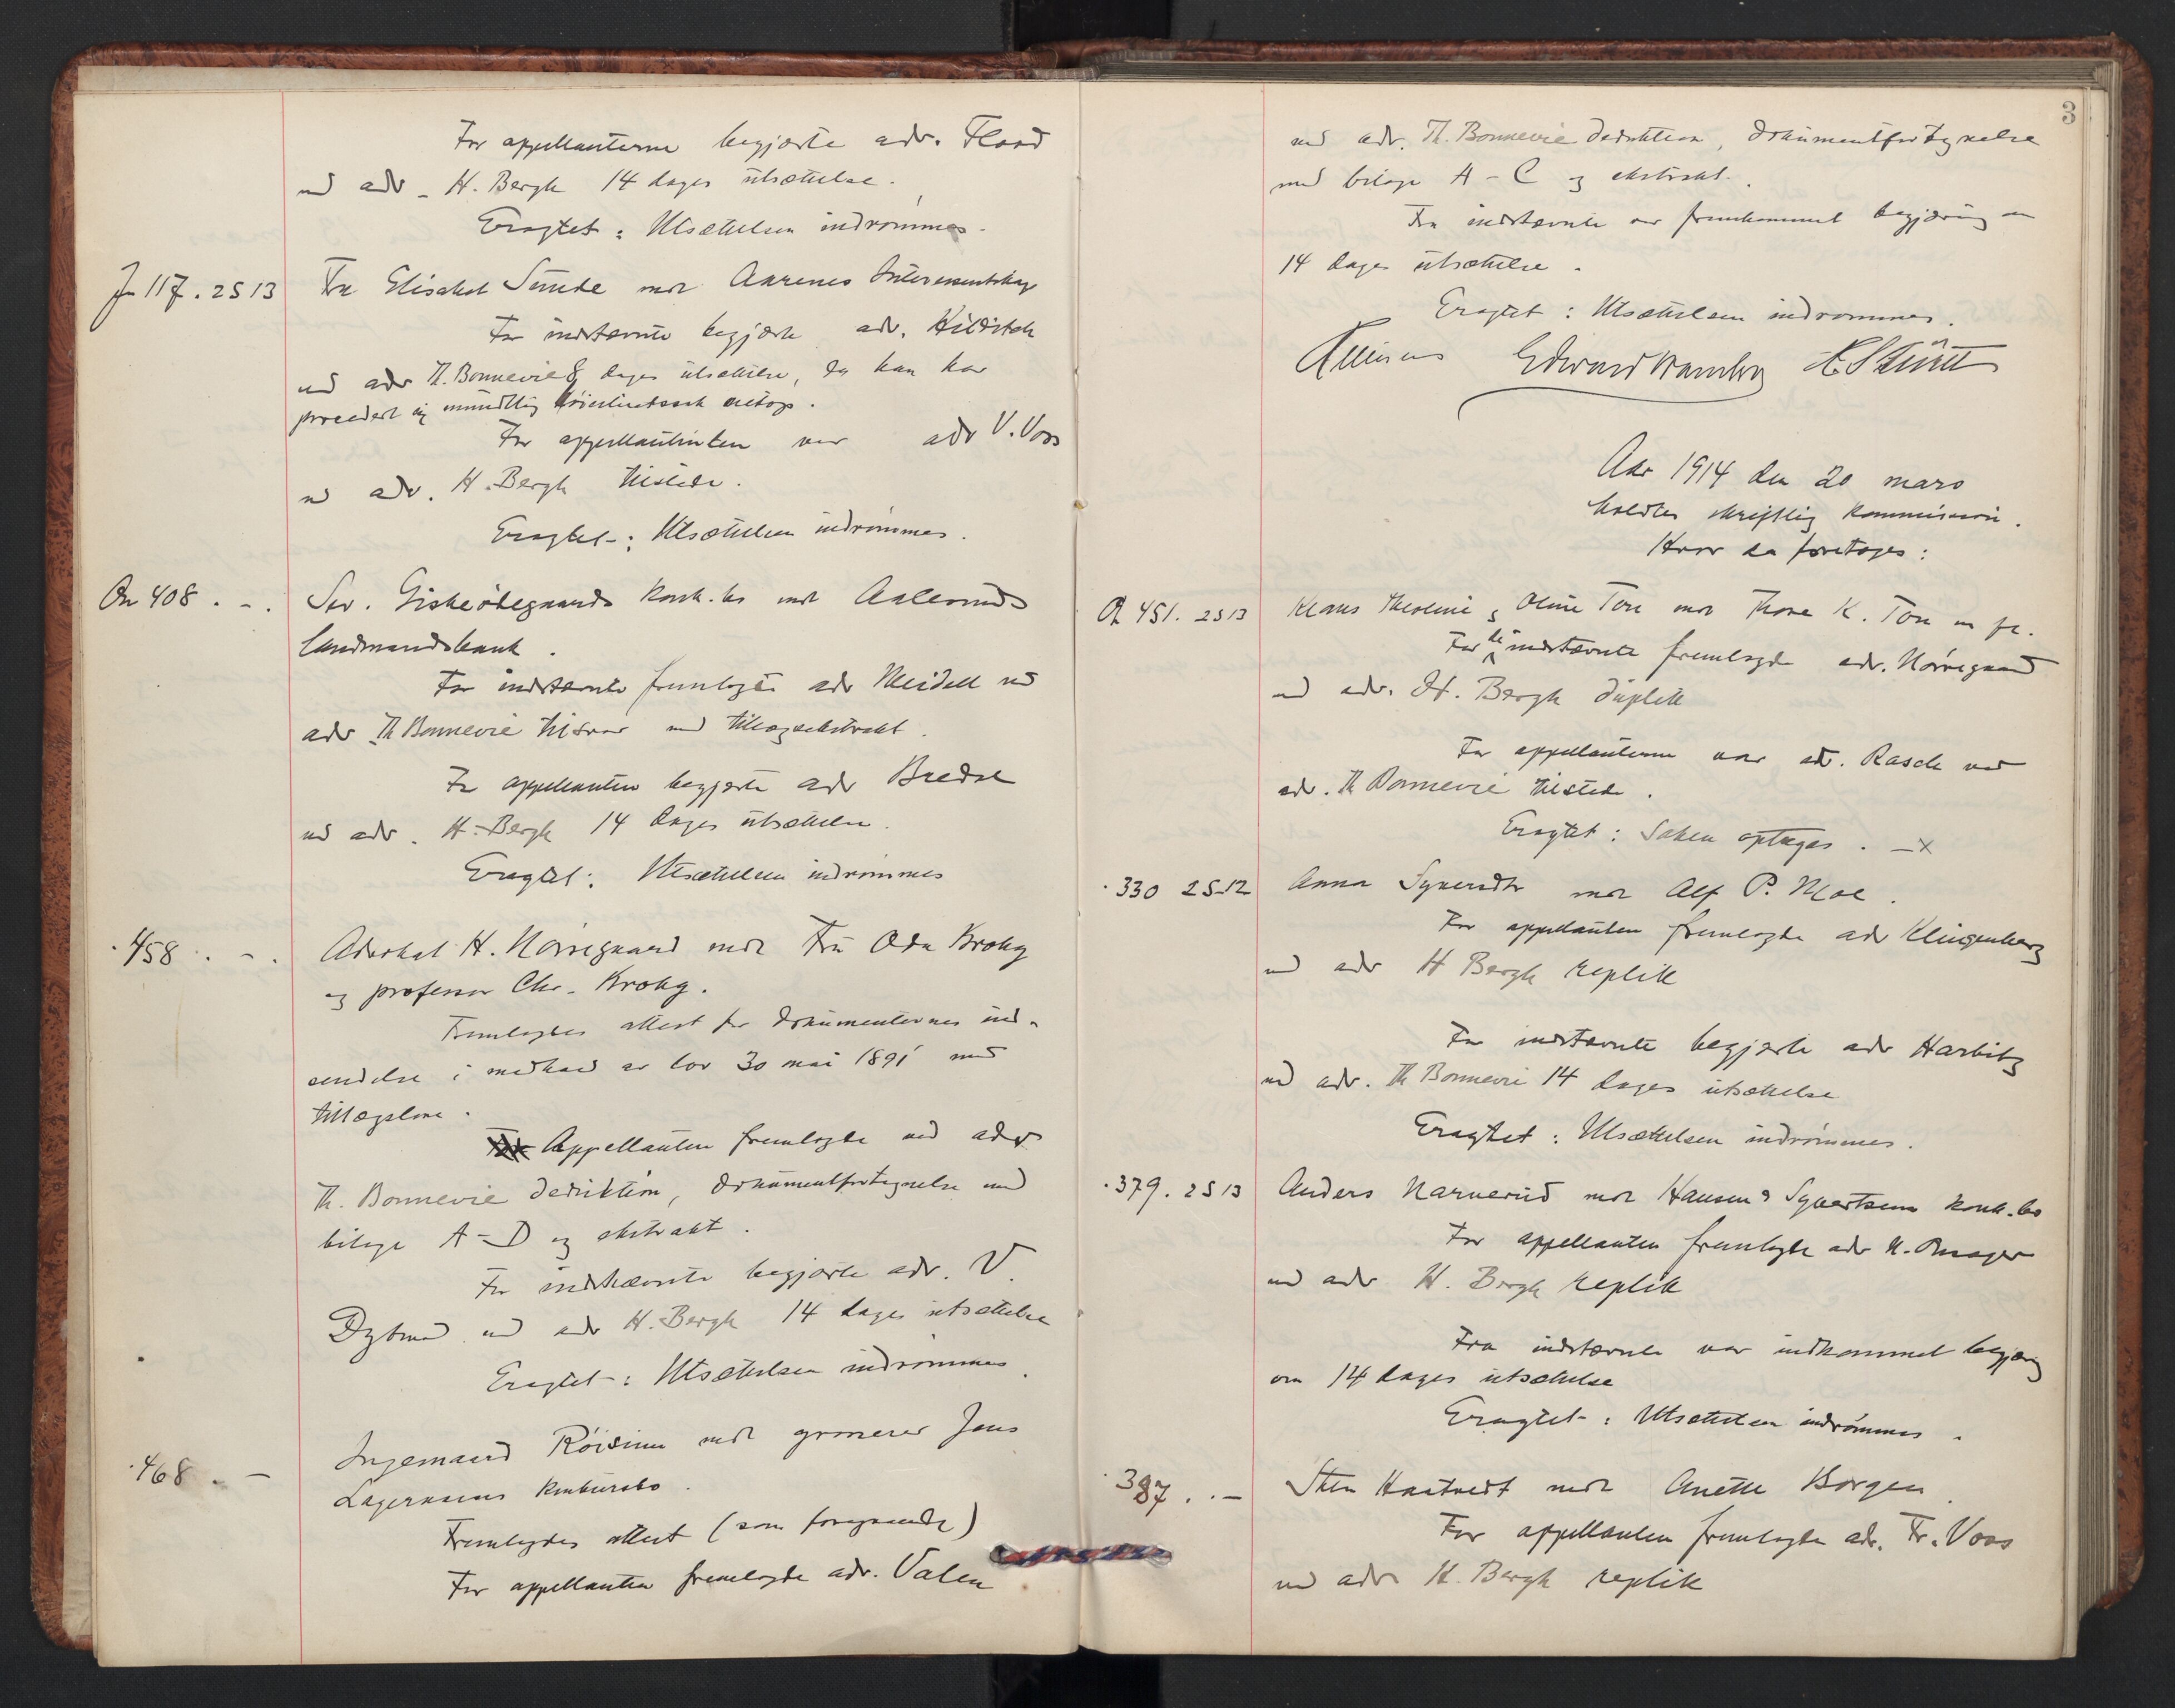 For appellanterne begjærte adv. Flood
ved adv. H. Bergh 14 dages utsættelse.
Eragtet: Utsættelsen indrømmes.
117. 2S 13 Fru Elisabet Sunde mot Aarenes Interessentskap
For indstævnte begjærte adv. Hilditch
ved adv Th. Bonnevie 8 dages utsættelse, da han har
procedert mundtlig
For appellantinden var adv V. Voss
ved adv. H. Bergh tilstede.
Eragtet: Utsættelsen indrømmes.
408 . - . Sev. Giskeødegaards konk.bo mot Aalesunds
Landmandsbank.
For indstævnte fremlagde adv Meidell ved
adv Th Bonnevie tilsvar med tillægsekstrakt.
For appellanten begjærte adv Bredal
ved adv. H. Bergh 14 dages utsættelse.
Eragtet: Utsættelsen indrømmes
. 458 . - . Advokat H. Nørregaard mot Fru Oda Krohg
og professor Chr. Krohg.
Fremlagdes attest for dokumenternes ind-
sendelse i medhold av lov 30 mai 1891 med
tillægslove.
Appellanten fremlagde ved adv
Th. Bonnevie deduktion, dokumentfortegnelse med
bilage A-D og ekstrakt.
For indstævnte begjærte adv. V.
ved adv H. Bergh 14 dages utsættelse
Eragtet: Utsættelsen indrømmes.
. 468 . - Ingemand Røisinn mot grosserer Jens
Lagernsens konkursbo.
Fremlagdes attest (som foregaaende)
For appellanten fremlagde adv. Valen
3
ved adv. Th. Bonnevie deduktion, dokumentfortegnelse
med bilage A-C og ekstrakt.
Fra indstævnte var fremkommet begjæring om
14 dages utsættelse.
Eragtet: Utsættelsen indrømmes.
Edvard
Aar 1914 den 20 mars
holdtes skriftlig kommission.
Hvor da foretoges:
451. 2S13 Klaus Theoline & Oline Tou mot Thore K. Tou m fl.
For de indstævnte fremlagde adv. Nørregaard
ved adv. H. Bergh duplik
For appellanterne var adv. Rasch ved
adv. Th Bonnevie tilstede.
Eragtet: Saken optages. - x
. 330 2S12 Anna Syversdtr mot Alf P. Moe.
For appellanten fremlagde adv Klingenberg
ved adv H Bergh replik
For indstævnte begjærte adv Harbitz
ved adv. Th Bonnevie 14 dages utsættelse
Eragtet: Utsættelsen indrømmes.
. 379. 2S13 Anders Narverud mot Hansen & Syvertsens konk.bo
For appellanten fremlagde adv N. Onsager
ved adv H. Bergh replik
Fra indstævnte var indkommet begjæring
om 14 dages utsættelse
Eragtet: Utsættelsen indrømmes.
. 387 . . - Sten Haatvedt mot Anette Borgen.
For appellanten fremlagde adv. Fr. Voss
ved adv H. Bergh replik